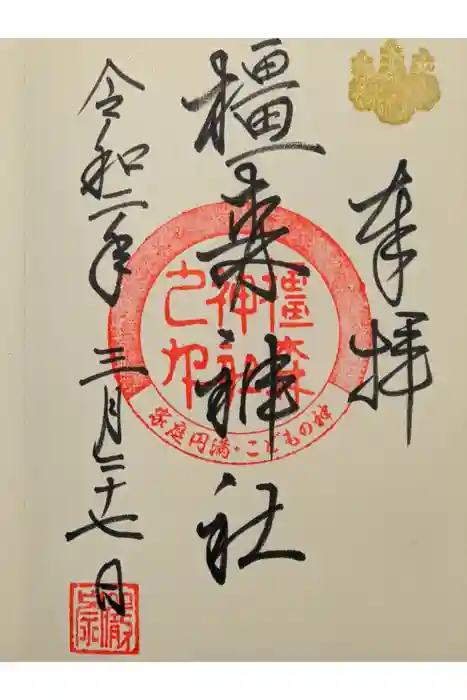 奉拝
橿森神社
橿森
神社
之印
家庭円満・こどもの神
令和二年
三月二十七日